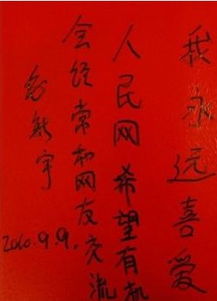 我永远喜爱
人民网希望有机
会经常和网友交流
宇
2010.9.9.